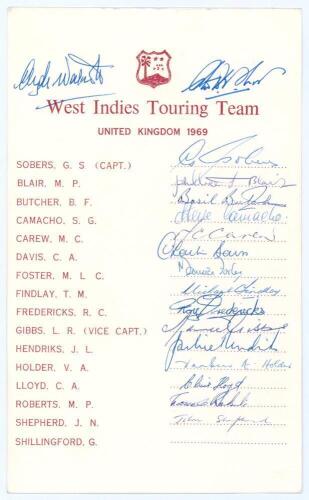 Clyde Walcott
West Indies Touring Team
UNITED KINGDOM 1969
SOBERS, G. S (CAPT.) G Sobers
BLAIR, M. P. Blair
BUTCHER, B. F. Basil Butcher
CAMACHO, S. G. Steve Camacho
CAREW, M. C. M C Carew
DAVIS, C. A. Charlie Davis
FOSTER, M. L. C. Maurice Foster
FINDLAY, T. M. Michael Findlay
FREDERICKS, R. C. Roy Fredericks
GIBBS, L. R. (VICE CAPT.) Lance Gibbs
HENDRIKS, J. L. Jackie Hendriks
HOLDER, V. A. Vanburn A. Holder
LLOYD, C. A. Clive Lloyd
ROBERTS, M. P. Roberts
SHEPHERD, J. N. John Shepherd
SHILLINGFORD, G.